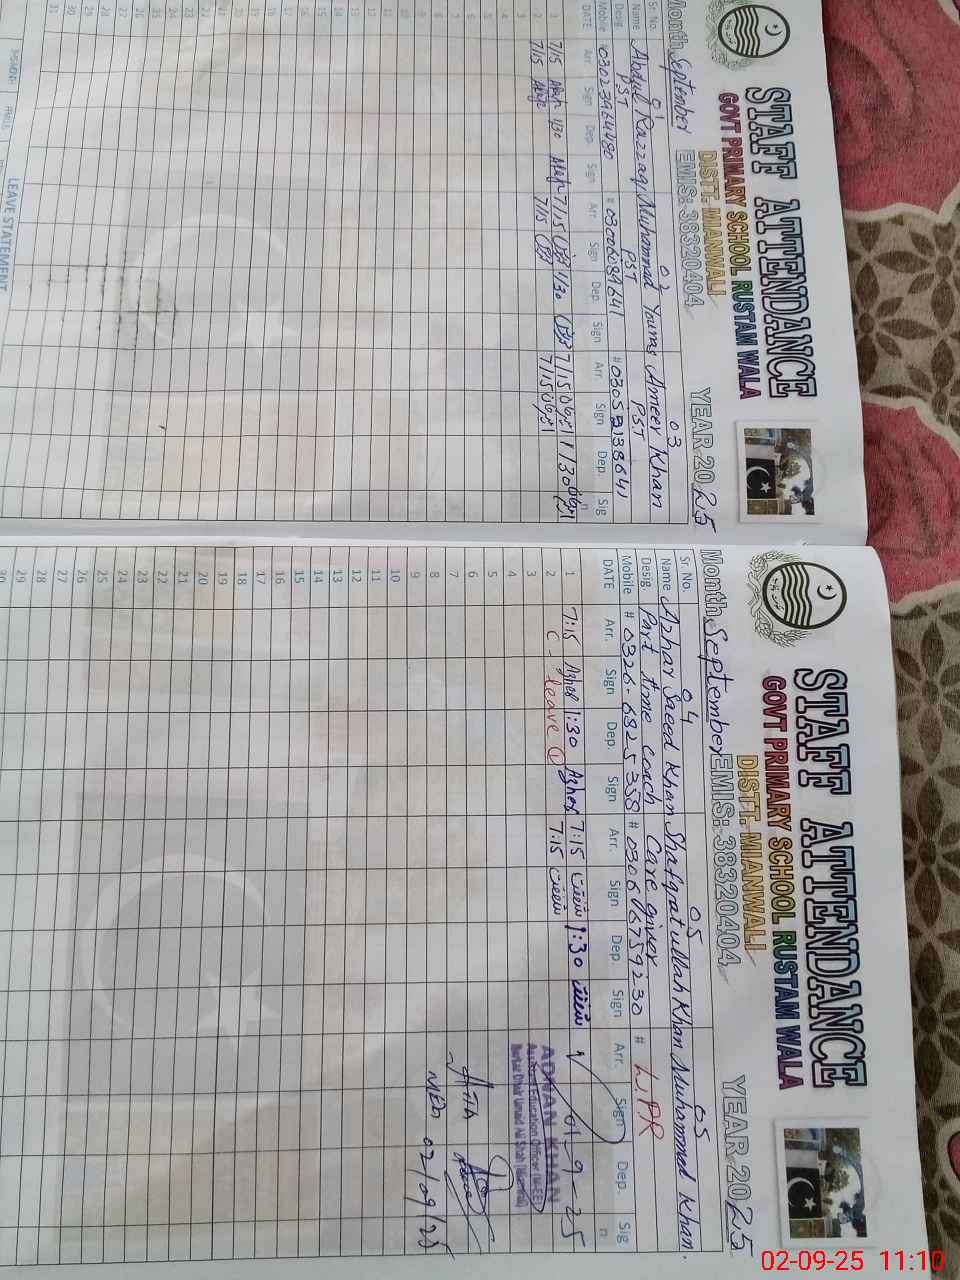 STAFF ATTENDANCE
GOVT PRIMARY SCHOOL RUSTAM WALA
DISTT. MIANWALI
Month September EMIS: 38320404 YEAR 2025
Sr. No. 01 02 03
Name Abdul Razzaq Muhammad Younas Ameer Khan
Desig. PST PST PST
Mobile 03023964480 # 03006089641 # 03052138641
DATE Arr. Sign Dep. Sign Arr. Sign Dep. Sign Arr. Sign Dep. Sig
1 7/15 1/30 7/15 1/30 7/15 1/30
2 7/15 7/15 7/15
3
4
5
6
7
8
9
10
11
12
13
14
15
16
17
18
19
20
21
22
23
24
25
26
27
28
29
30
31
LEAVE STATEMENT
STAFF ATTENDANCE
GOVT PRIMARY SCHOOL RUSTAM WALA
DISTT. MIANWALI
Month September EMIS: 38320404 YEAR 2025
Sr. No. 04 05 05
Name Azhar Saeed Khan Shafqatullah Khan Muhammad Khan.
Desig. Part time coach Care giver.
Mobile # 0326-6825358 # 03067759230 # LPR
DATE Arr. Sign Dep. Sign Arr. Sign Dep. Sign Arr. Sign Dep. Sig
1 7:15 Azhar 1:30 Azhar 7:15 شفقت 1:30 شفقت 01-9-25
2 C-leave ① 7:15 شفقت
ADNAN KHAN
Assistant Education Officer (M-EE)
3
4
5
6
7
8 02/09/25
9
10
11
12
13
14
15
16
17
18
19
20
21
22
23
24
25
26
27
28
29
30
02-09-25 11:10